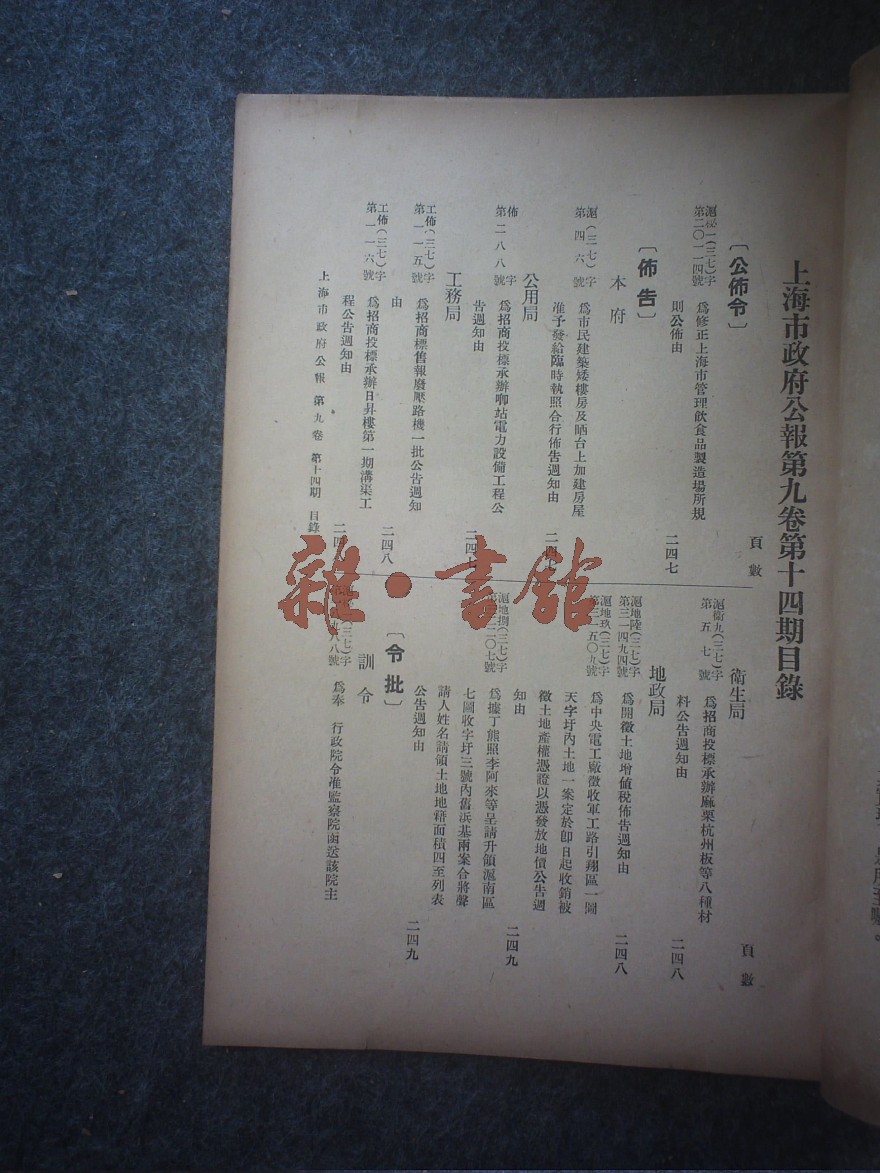 上海市政府公報第九卷第十四期目錄
頁數
〔公佈令〕
滬秘一(三七)字
第二〇一一四號
爲修正上海市管理飲食品製造場所規
則公佈由
二四七
〔佈告〕
本府
滬(三七)字
第四六號
爲市民建築矮樓房及晒台上加建房屋
准予發給臨時執照合行佈告週知由
二四七
公用局
佈字
第二八八號
爲招商投標承辦唧站電力設備工程公
告週知由
二四七
工務局
工佈(三七)字
第一一五號
爲招商標售報廢壓路機一批公告週知
由
二四八
工佈(三七)字
第一一六號
爲招商投標承辦日昇樓第一期溝渠工
程公告週知由
二四八
上海市政府公報 第九卷 第十四期 目錄
頁數
衛生局
滬衛九(三七)字
第五七號
爲招商投標承辦麻栗杭州板等八種材
料公告週知由
二四八
地政局
滬地陸(三七)字
第三一四九四號
爲開徵土地增值稅佈告週知由
二四八
滬地玖(三七)字
第三一五〇九號
爲中央電工廠徵收軍工路引翔區一圖
天字圩內土地一案定於卽日起收銷被
徵土地產權憑證以憑發放地價公告週
知由
二四九
滬地捌(三七)字
二二〇七號
爲據丁熊照李阿來等呈請升領滬南區
七圖收字圩三號內舊浜基兩案合將聲
請人姓名請領土地地積面積四至列表
公告週知由
二四九
〔令批〕
訓令
(三七)字
八八號
爲奉 行政院令准監察院函送該院主
雜·書館